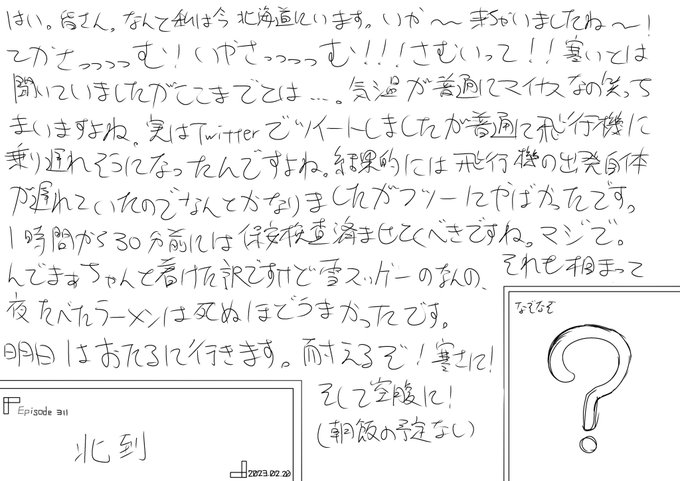 はい。皆さん。なんと私は今北海道にいます。いか〜〜来ちゃいましたね〜！
てかさっっっっむ！いやさっっっっむ！！！さむいって！！寒いとは
聞いていましたがここまでとは…。気温が普通にマイナスなの笑っち
まいますよね。実はTwitterでツイートしましたが普通に飛行機に
乗り遅れそうになったんですよね。結果的には飛行機の出発自体
が遅れていたのでなんとかなりましたがフツーにやばかったです。
1時間から30分前には保安検査済ませてくべきですね。マジで。
んでまぁちゃんと着けた訳ですけど雪スッゲーのなんの、それも相まって
夜たべたラーメンは死ぬほどうまかったです。
明日はおたるに行きます。耐えるぞ！寒さに！
そして空腹に！
(朝飯の予定なし)
Episode 311
北到
2023.02.20
なぞなぞ
?